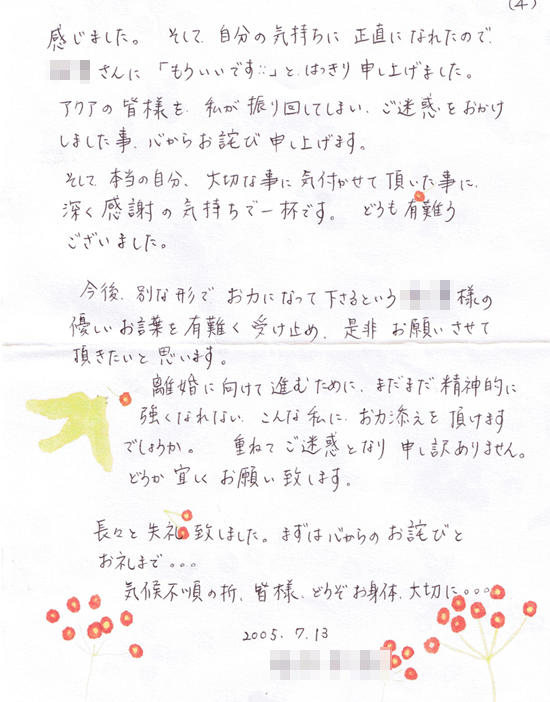 (4)
感じました。 そして、自分の気持ちに 正直になれたので、
さんに 「もういいです…」と、はっきり 申し上げました。
アクアの皆様を、私が振り回してしまい、ご迷惑をおかけ
しました事、心からお詫び申し上げます。
そして、本当の自分、大切な事に気付かせて頂いた事に、
深く感謝の気持ちで一杯です。 どうも有難う
ございました。
今後、別な形で お力になって下さるという 様の
優しいお言葉を有難く受け止め、是非 お願いさせて
頂きたいと思います。
離婚に向けて進むために、まだまだ精神的に
強くなれない、こんな私に、お力添えを頂けます
でしょうか。 重ねてご迷惑となり 申し訳ありません。
どうか宜しくお願い致します。
長々と失礼致しました。まずは心からのお詫びと
お礼まで。。。
気候不順の折、皆様、どうぞお身体、大切に。。。
2005. 7. 13